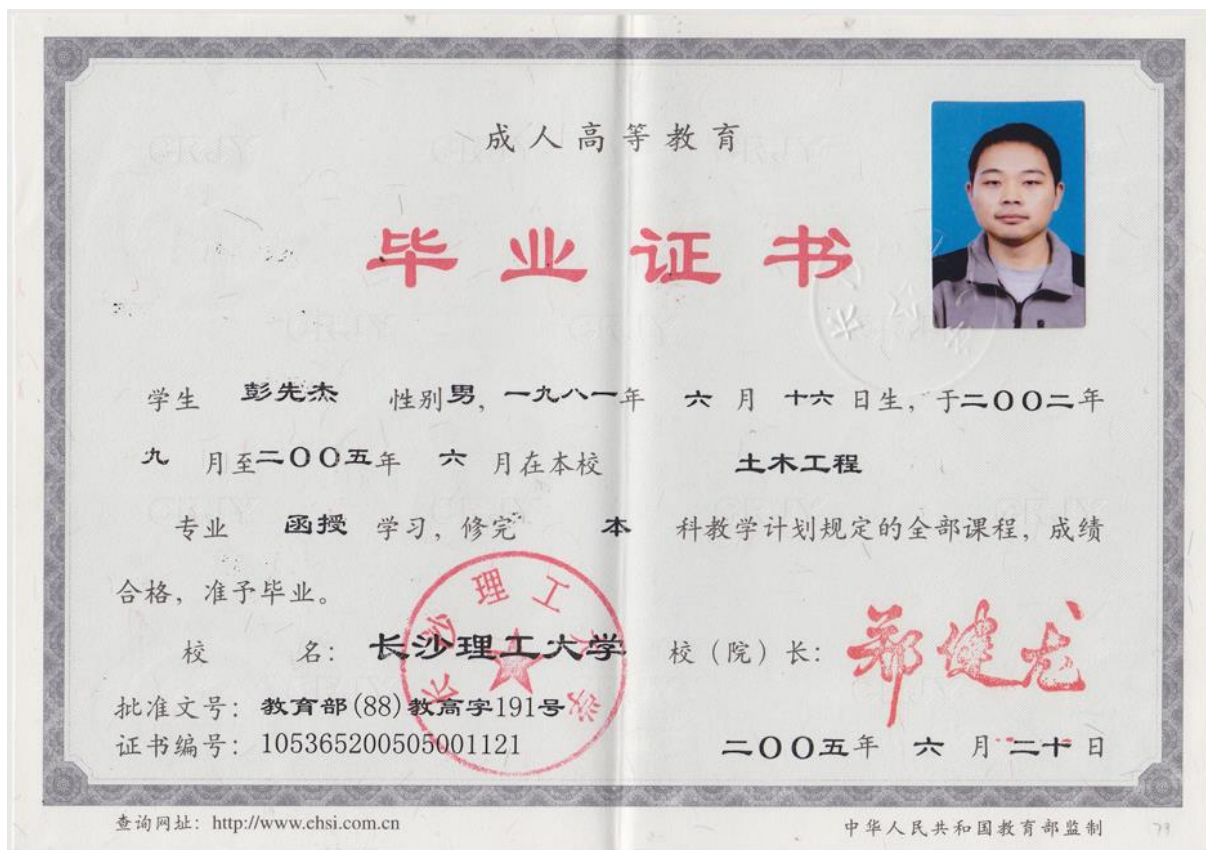 成人高等教育
毕业证书
学生 彭先杰 性别男，一九八一年 六 月 十六 日生，于二〇〇二年
九 月至二〇〇五年 六 月在本校 土木工程
专业 函授 学习，修完 本 科教学计划规定的全部课程，成绩
合格，准予毕业。
长沙理工大学
校 名：长沙理工大学 校（院）长：郑健龙
批准文号：教育部(88)教高字191号
证书编号：105365200505001121 二〇〇五年 六 月 二十 日
查询网址：http://www.chsi.com.cn 中华人民共和国教育部监制